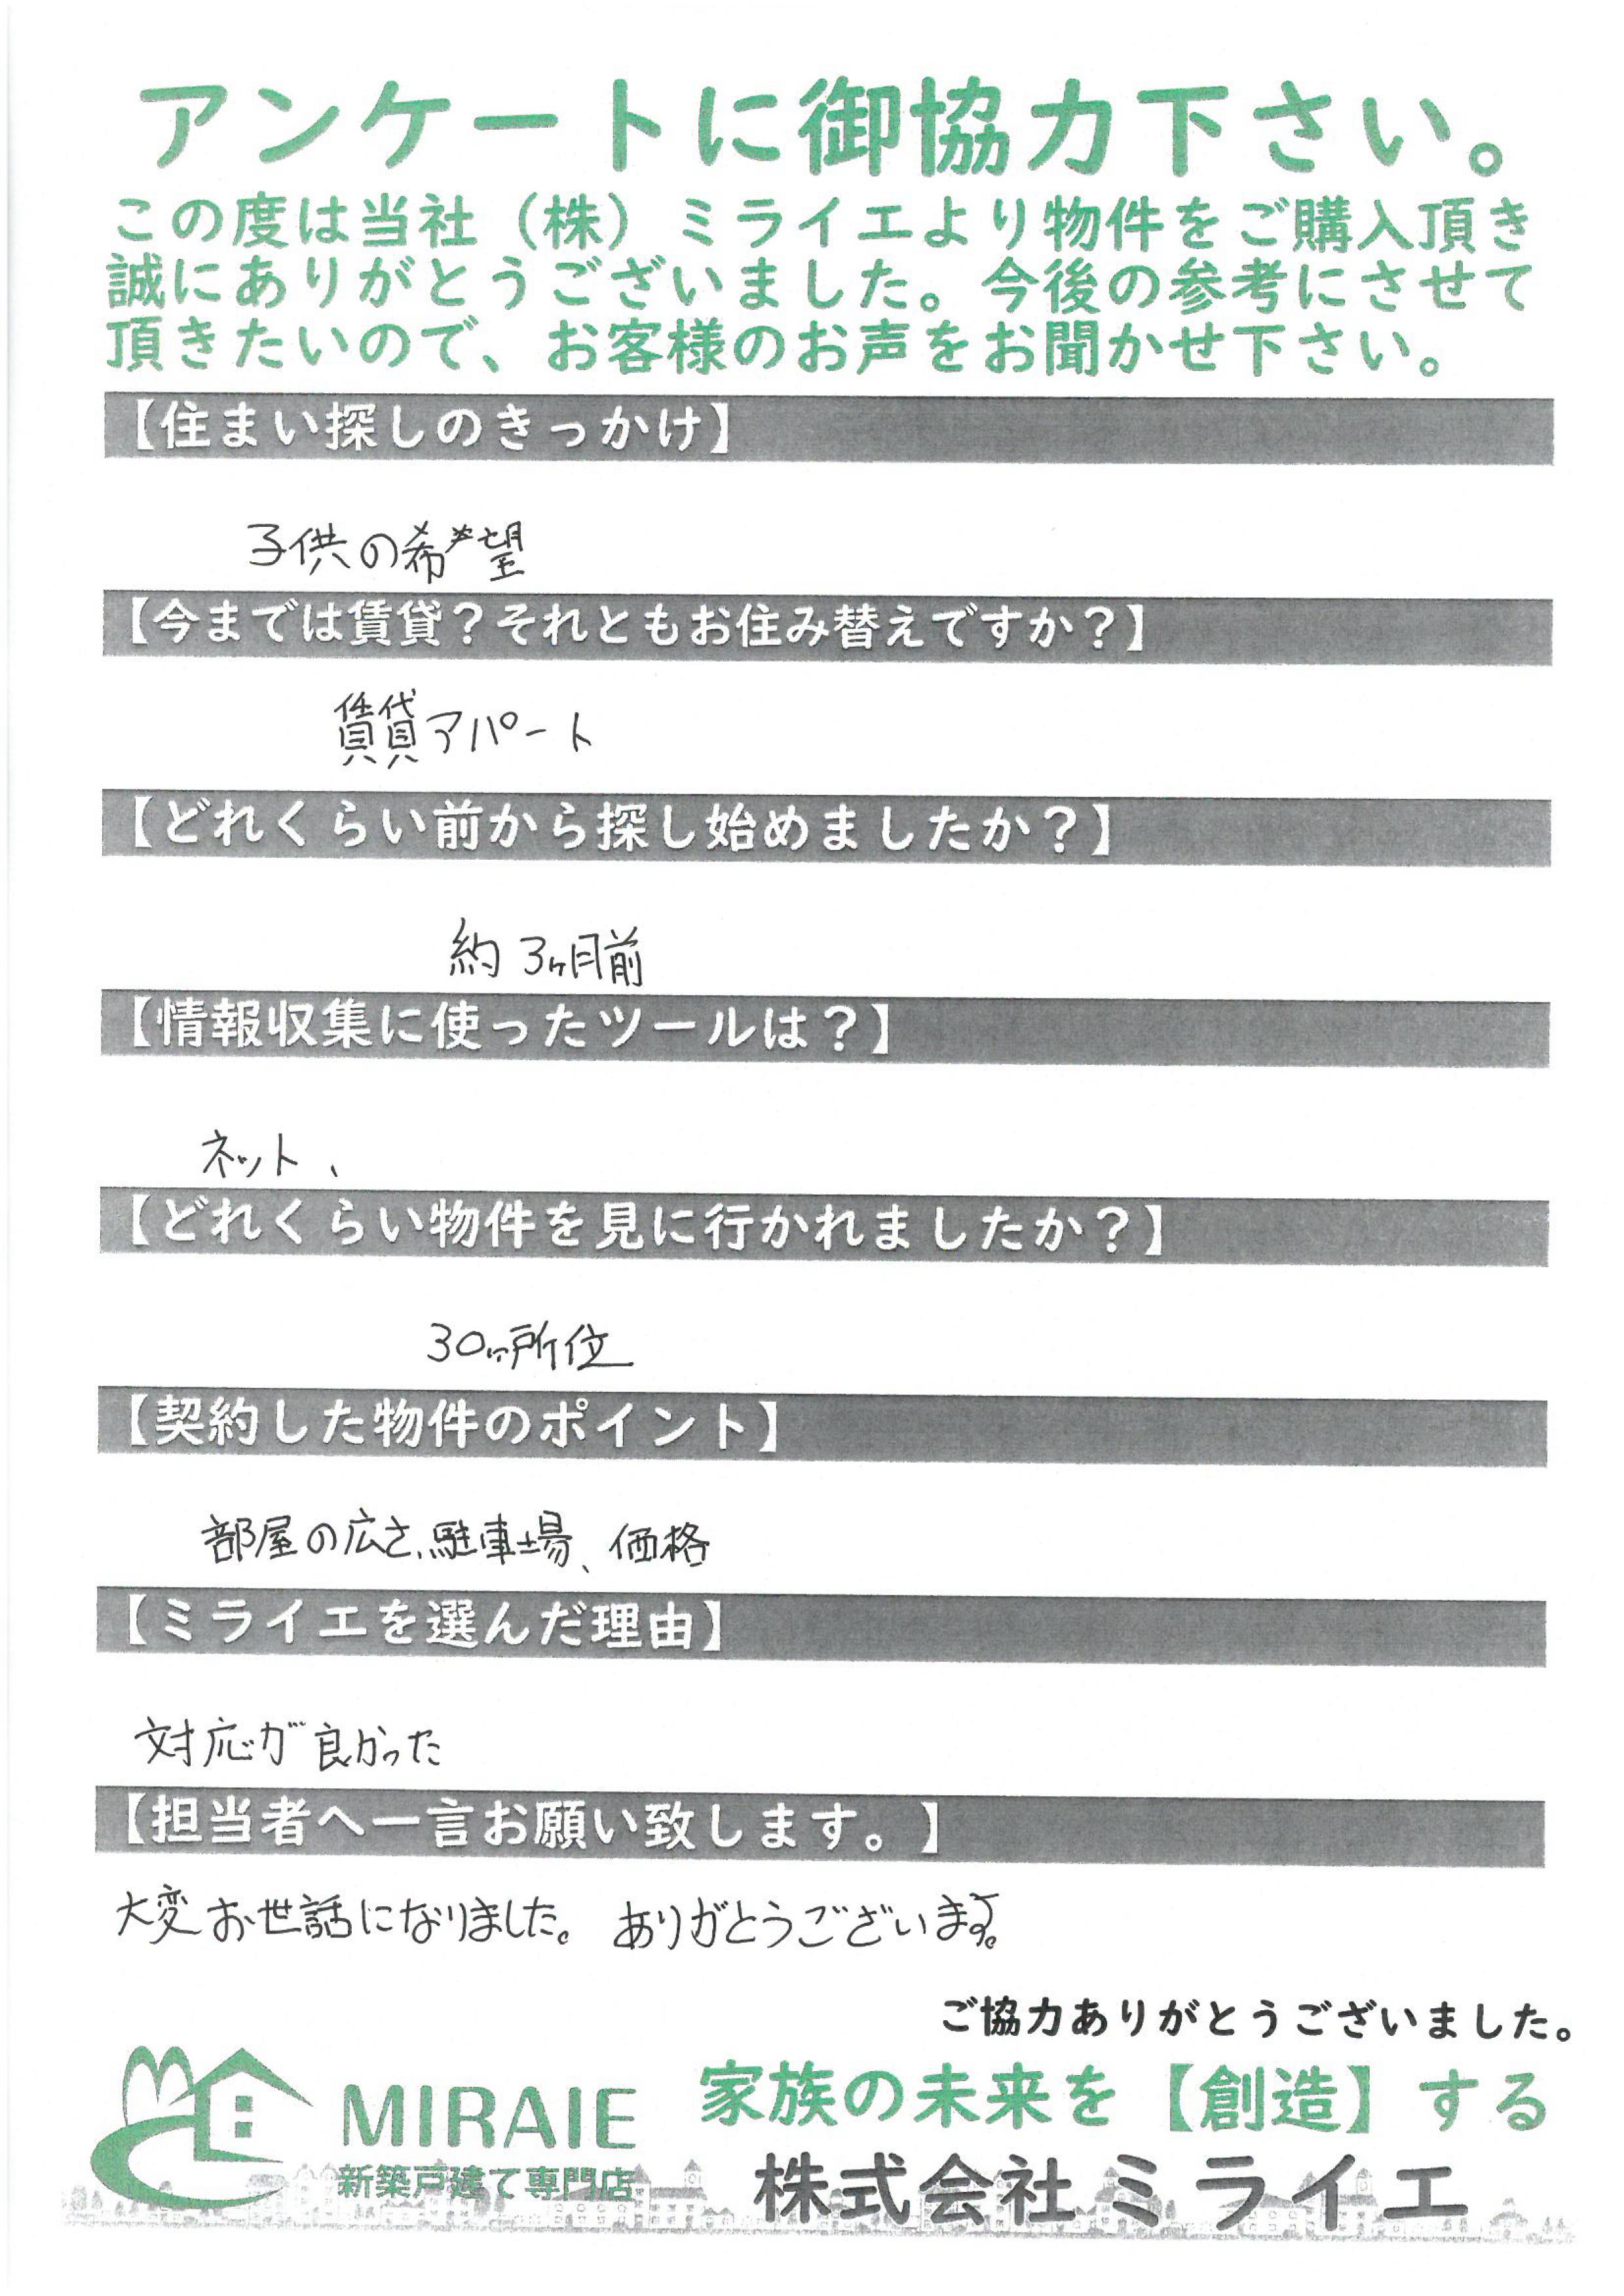 アンケートに御協力下さい。
この度は当社（株）ミライエより物件をご購入頂き
誠にありがとうございました。今後の参考にさせて
頂きたいので、お客様のお声をお聞かせ下さい。
【住まい探しのきっかけ】
子供の希望
【今までは賃貸？それともお住み替えですか？】
賃貸アパート
【どれくらい前から探し始めましたか？】
約3ヶ月前
【情報収集に使ったツールは？】
ネット、
【どれくらい物件を見に行かれましたか？】
30ヶ所位
【契約した物件のポイント】
部屋の広さ、駐車場、価格
【ミライエを選んだ理由】
対応が良かった
【担当者へ一言お願い致します。】
大変お世話になりました。ありがとうございます。
ご協力ありがとうございました。
MIRAIE
新築戸建て専門店
家族の未来を【創造】する
株式会社ミライエ